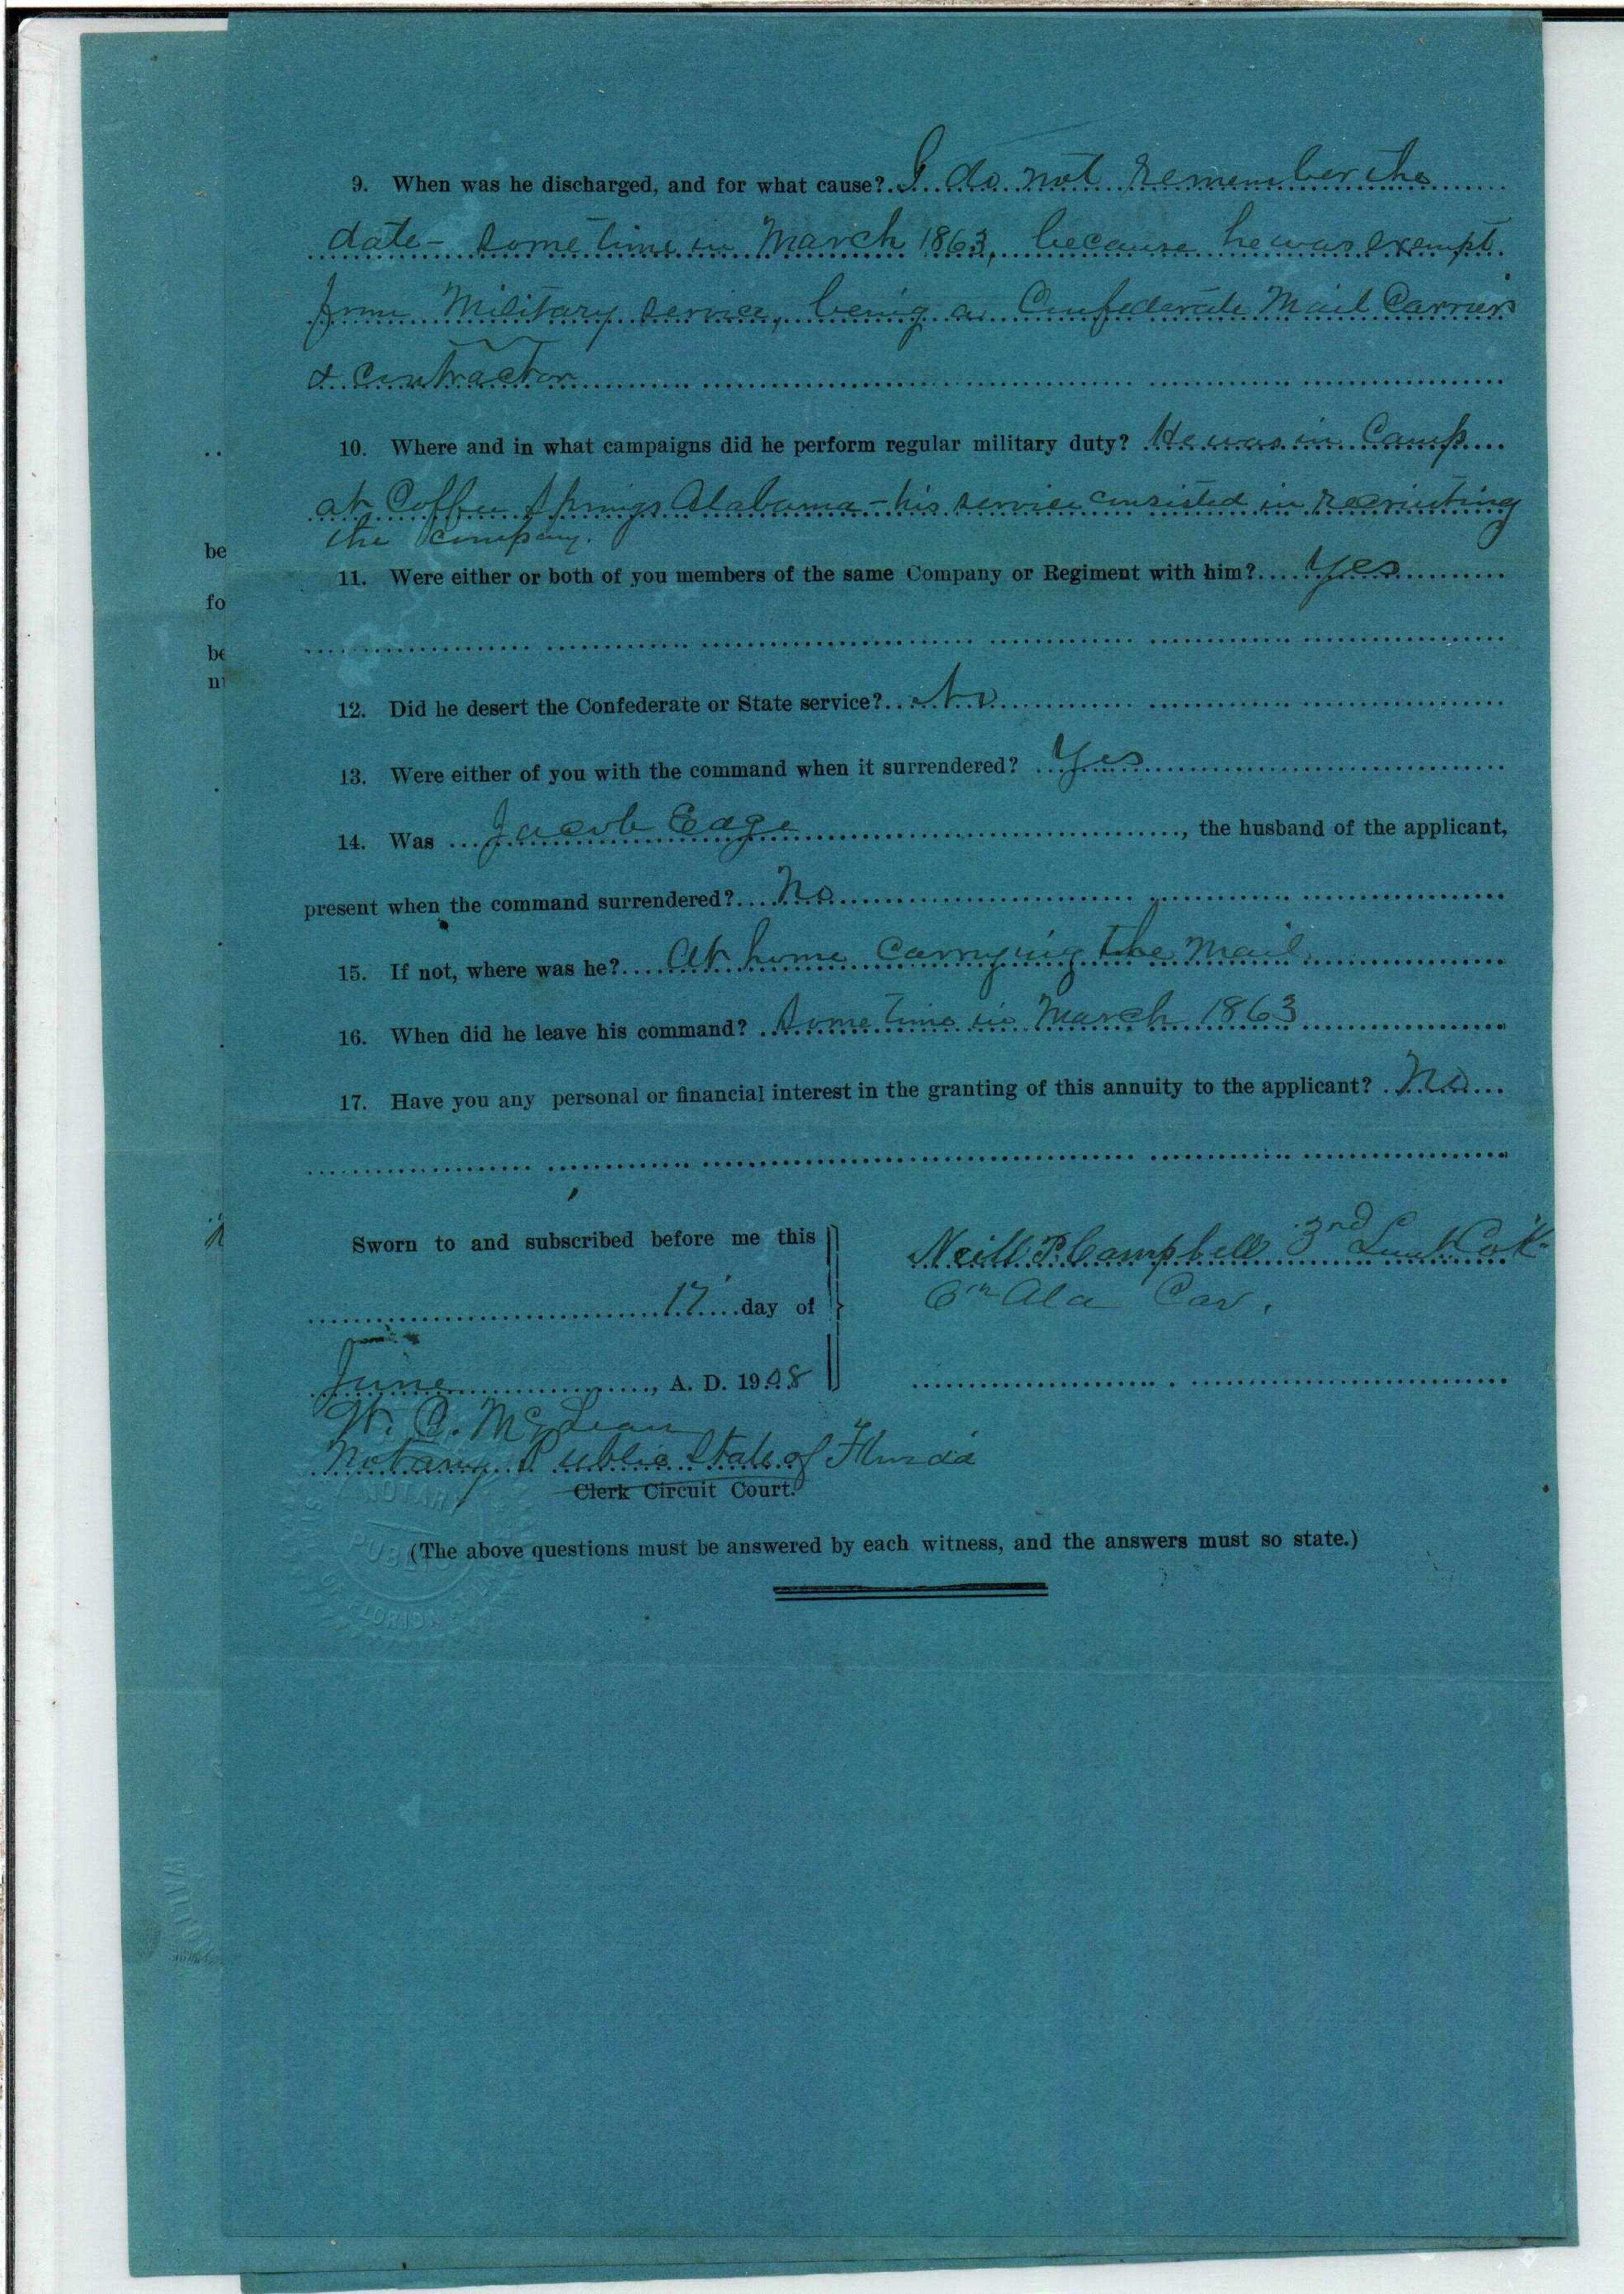 9. When was he discharged, and for what cause? I do not remember the
date - some time in March 1863, because he was exempt
from Military service, being a Confederate Mail Carrier
& contractor
10. Where and in what campaigns did he perform regular military duty? He was in Camp
at Coffee Springs Alabama - his service consisted in recruiting
the company.
be
11. Were either or both of you members of the same Company or Regiment with him? Yes
fo
be
12. Did he desert the Confederate or State service? No
13. Were either of you with the command when it surrendered? Yes
14. Was Jacob Edge, the husband of the applicant,
present when the command surrendered? No
15. If not, where was he? At home carrying the mail
16. When did he leave his command? Some time in March 1863
17. Have you any personal or financial interest in the granting of this annuity to the applicant? No
Sworn to and subscribed before me this
17 day of
June, A. D. 1908
Neill P. Campbell 3rd Lieut Co K
6th Ala Cav.
W. C. McLean
Notary Public State of Florida
Clerk Circuit Court.
NOTARY
PUBLIC
STATE OF FLORIDA
(The above questions must be answered by each witness, and the answers must so state.)
WALTO